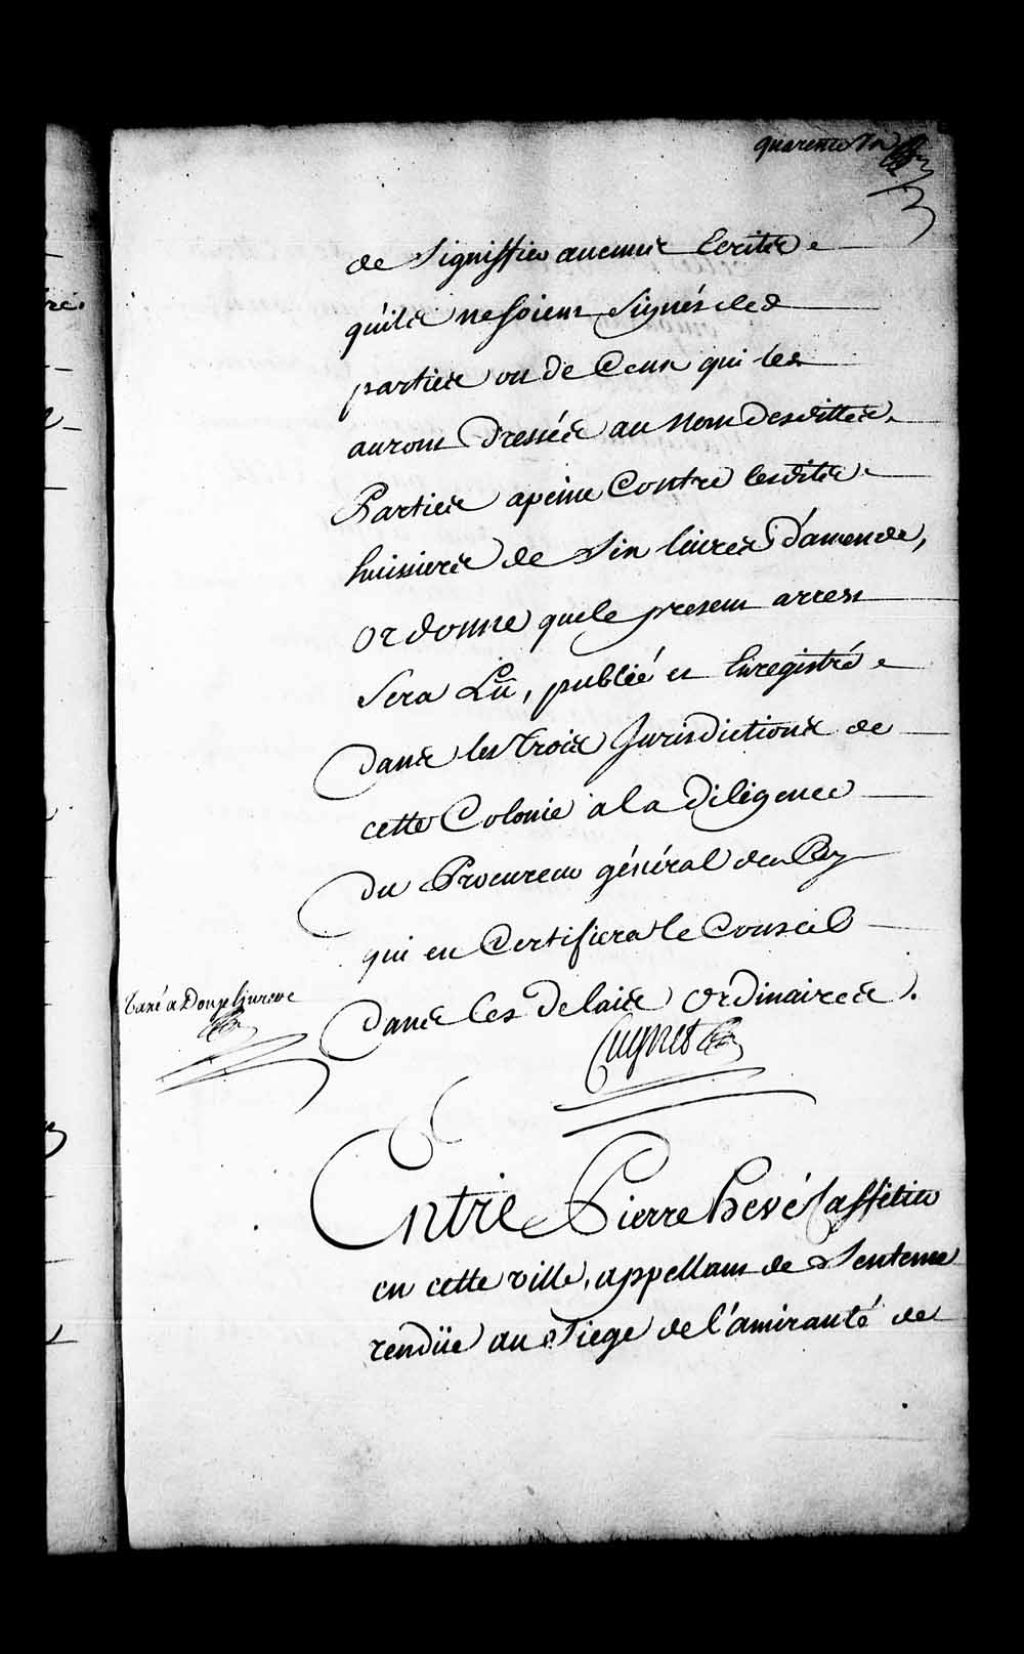 quarente Un
de Signiffier aucunes Ecrites
quils ne soient Signés des
parties ou de Ceux qui les
auront dressées au nom desdittes
Parties apeine Contre lesdits
huissiers de Six livres d'amende,
ordonne que le present arrest
Sera Lü, publié et Enregistré
Dans les trois Jurisdictions de
cette Colonie a la Diligence
Du Procureur général du Roy
qui en Certifiera le Conseil
Dans les Delais ordinaires.
taxé a Douze livres
Cugnet
Entre Pierre hevé Caffetier
en cette ville, appellant de Sentence
rendüe au Siege de l'amirauté de